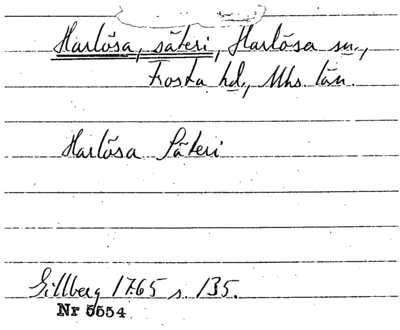 Harlösa, säteri, Harlösa sn.,
Frosta hd., Mhs. län.
Harlösa Säteri
Gillberg 1765 s. 135.
Nr 5554